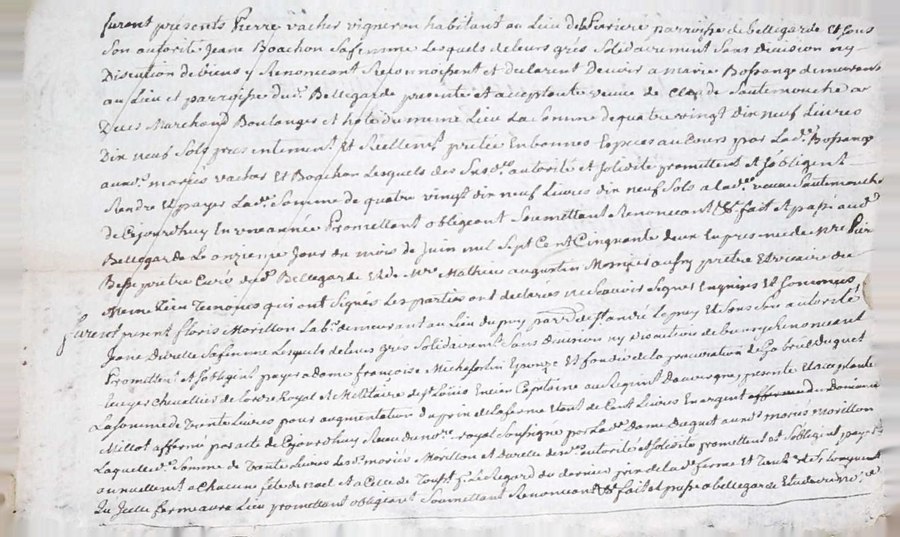 furent présents Pierre vacher vigneron habitant au Lieu de la parroisse de bellegarde Et sous
Son autorité Jeane Boachon Sa femme Lesquels de leurs grés Solidairement Sans division ny
Discution de biens y Renoncant Reconnoissent et declarent Devoir a marie Bossange demeurant
au Lieu et parroisse dud. Bellegarde presente et acceptante veuve de Clau de Sautemouche
Marchand Boulanger et hote du meme Lieu La Somme de quatre vingt Dix neuf Livres
Dix neuf Sols presentement Et Reellemt pretée En bonnes Especes au Cours par Lad. Bossange
auxd. mariés vacher Et Boachon Lesquels des Susd. autorité et Solidité promettent et Sobligent
Rendre Et payer Lad. Somme de quatre vingt dix neuf Livres dix neuf Sols a lad. veuve Sautemouche
de Cejourdhuy En une année Promettant obligeant Soumettant Renoncant & fait et passé aud.
Bellegarde Le onzieme Jour du mois de Juin mil Sept Cent Cinquante deux En presence de Mre
Besse pretre Curé dud. Bellegarde Et de Mre Mathieu augustin pretre Et vicaire du
meme Lieu Temoins qui ont Signés Les parties ont déclarés ne Scavoir Signer Enquises Et Sommées
furent presents floris Morillon Lab. demeurant au Lieu du puy parr. de St. andré Le puy Et Sous Son autorité
Jeane Durelle Sa femme Lesquels de leurs grés Solidairement Sans division ny discution de biens y Renoncant
Promettent et Sobligent payer a dame francoise Epouse Et fondée de la procuration de Gabriel Duguet
Ecuyer Chevallier de Lordre Royal et Militaire de St. Louis Encien Capitaine au Regimt Dauvergne, presente Et acceptante
La Somme de Trente Livres pour augmentation du prix de La ferme de Cent Livres En argent du Domaine
Millot affermé par acte de Cejourdhuy Receu du no.re royal Soussigné par Lad. Dame Duguet auxd. mariés Morillon
Laquelle d. Somme de Trente Livres Lesd. mariés Morillon et Durelle des d. autorité et Solidité promettent et Sobligent payer
annuellement a Chacune fête de Noel et a Celle de Toussts Legard du dernier prix de lad. ferme Et
que Icelle ferme aura Lieu promettant obligeant Soumettant Renoncant & fait et passé a bellegarde